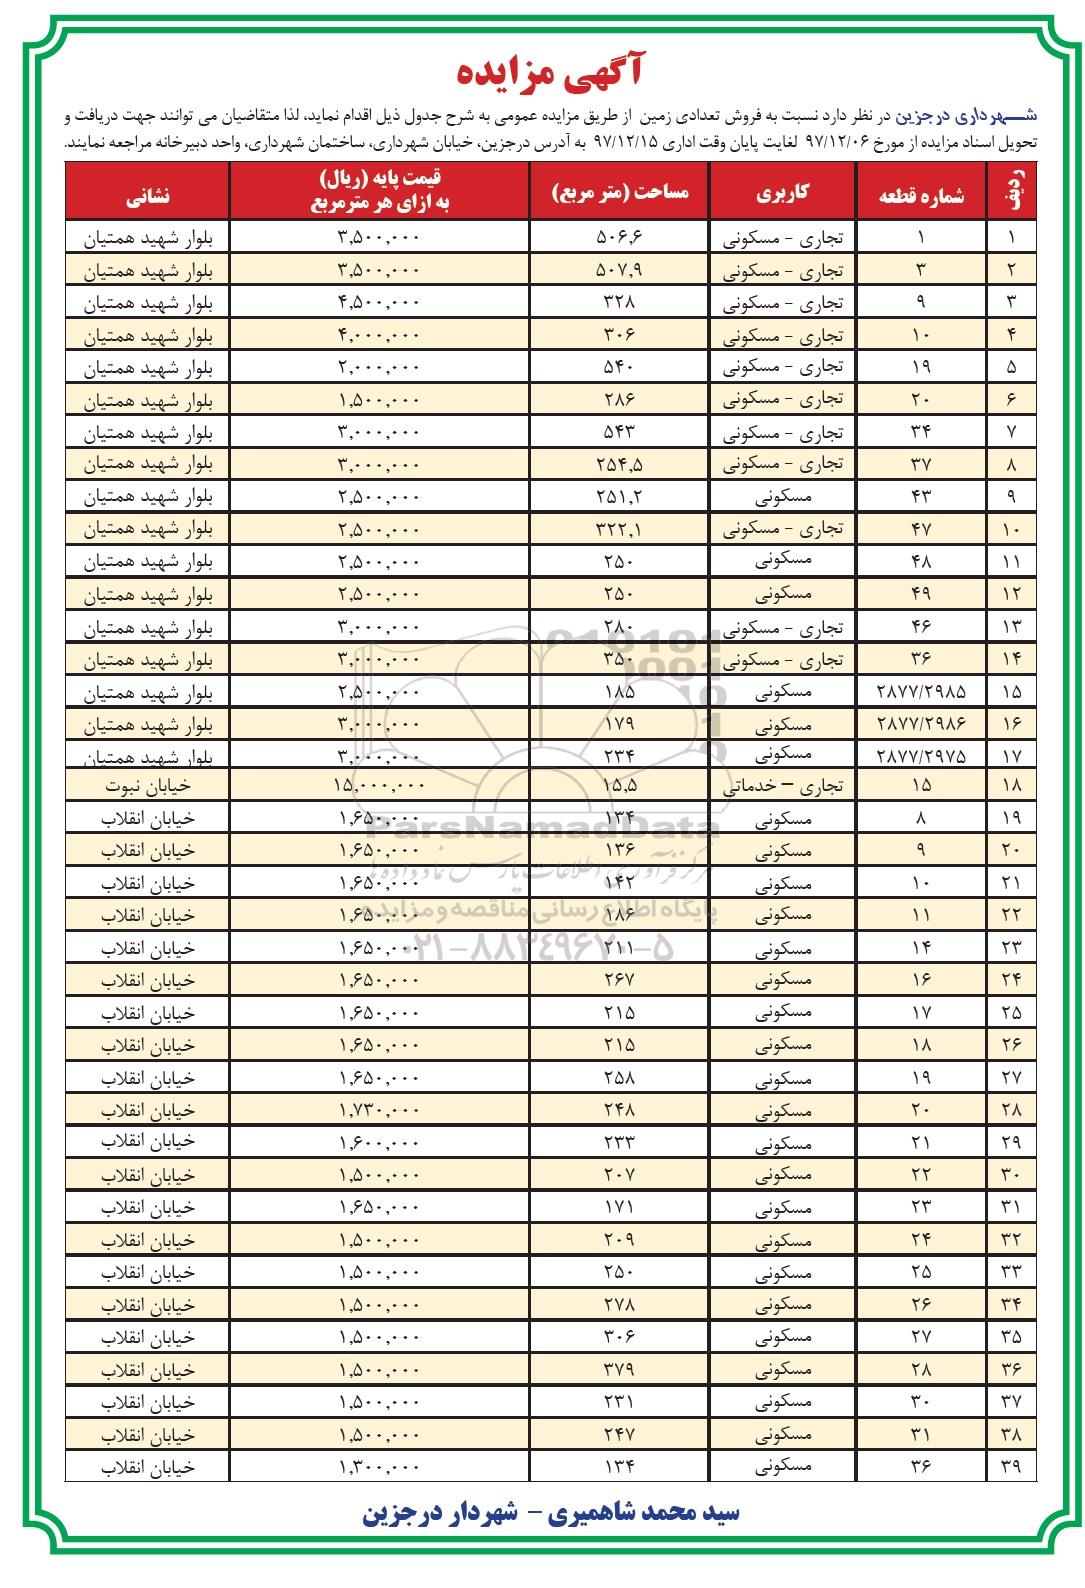 آگهی مزایده
شـــهرداری درجزین در نظر دارد نسبت به فروش تعدادی زمین از طریق مزایده عمومی به شرح جدول ذیل اقدام نماید، لذا متقاضیان می توانند جهت دریافت و
تحویل اسناد مزایده از مورخ ۹۷/۱۲/۰۶ لغایت پایان وقت اداری ۹۷/۱۲/۱۵ به آدرس درجزین، خیابان شهرداری، ساختمان شهرداری، واحد دبیرخانه مراجعه نمایند.
ردیف شماره قطعه کاربری مساحت (متر مربع) قیمت پایه (ریال) به ازای هر مترمربع نشانی
۱ ۱ تجاری - مسکونی ۵۰۶,۶ ۳,۵۰۰,۰۰۰ بلوار شهید همتیان
۲ ۳ تجاری - مسکونی ۵۰۷,۹ ۳,۵۰۰,۰۰۰ بلوار شهید همتیان
۳ ۹ تجاری - مسکونی ۳۲۸ ۴,۵۰۰,۰۰۰ بلوار شهید همتیان
۴ ۱۰ تجاری - مسکونی ۳۰۶ ۴,۰۰۰,۰۰۰ بلوار شهید همتیان
۵ ۱۹ تجاری - مسکونی ۵۴۰ ۲,۰۰۰,۰۰۰ بلوار شهید همتیان
۶ ۲۰ تجاری - مسکونی ۲۸۶ ۱,۵۰۰,۰۰۰ بلوار شهید همتیان
۷ ۳۴ تجاری - مسکونی ۵۴۳ ۳,۰۰۰,۰۰۰ بلوار شهید همتیان
۸ ۳۷ تجاری - مسکونی ۲۵۴,۵ ۳,۰۰۰,۰۰۰ بلوار شهید همتیان
۹ ۴۳ مسکونی ۲۵۱,۲ ۲,۵۰۰,۰۰۰ بلوار شهید همتیان
۱۰ ۴۷ تجاری - مسکونی ۳۲۲,۱ ۲,۵۰۰,۰۰۰ بلوار شهید همتیان
۱۱ ۴۸ مسکونی ۲۵۰ ۲,۵۰۰,۰۰۰ بلوار شهید همتیان
۱۲ ۴۹ مسکونی ۲۵۰ ۲,۵۰۰,۰۰۰ بلوار شهید همتیان
۱۳ ۴۶ تجاری - مسکونی ۲۸۰ ۳,۰۰۰,۰۰۰ بلوار شهید همتیان
۱۴ ۳۶ تجاری - مسکونی ۳۵۰ ۳,۰۰۰,۰۰۰ بلوار شهید همتیان
۱۵ ۲۸۷۷/۲۹۸۵ مسکونی ۱۸۵ ۲,۵۰۰,۰۰۰ بلوار شهید همتیان
۱۶ ۲۸۷۷/۲۹۸۶ مسکونی ۱۷۹ ۳,۰۰۰,۰۰۰ بلوار شهید همتیان
۱۷ ۲۸۷۷/۲۹۷۵ مسکونی ۲۳۴ ۳,۰۰۰,۰۰۰ بلوار شهید همتیان
۱۸ ۱۵ تجاری – خدماتی ۱۵,۵ ۱۵,۰۰۰,۰۰۰ خیابان نبوت
۱۹ ۸ مسکونی ۱۳۴ ۱,۶۵۰,۰۰۰ خیابان انقلاب
۲۰ ۹ مسکونی ۱۳۶ ۱,۶۵۰,۰۰۰ خیابان انقلاب
۲۱ ۱۰ مسکونی ۱۴۲ ۱,۶۵۰,۰۰۰ خیابان انقلاب
۲۲ ۱۱ مسکونی ۱۸۶ ۱,۶۵۰,۰۰۰ خیابان انقلاب
۲۳ ۱۴ مسکونی ۲۱۱ ۱,۶۵۰,۰۰۰ خیابان انقلاب
۲۴ ۱۶ مسکونی ۲۶۷ ۱,۶۵۰,۰۰۰ خیابان انقلاب
۲۵ ۱۷ مسکونی ۲۱۵ ۱,۶۵۰,۰۰۰ خیابان انقلاب
۲۶ ۱۸ مسکونی ۲۱۵ ۱,۶۵۰,۰۰۰ خیابان انقلاب
۲۷ ۱۹ مسکونی ۲۵۸ ۱,۶۵۰,۰۰۰ خیابان انقلاب
۲۸ ۲۰ مسکونی ۲۴۸ ۱,۷۳۰,۰۰۰ خیابان انقلاب
۲۹ ۲۱ مسکونی ۲۳۳ ۱,۶۰۰,۰۰۰ خیابان انقلاب
۳۰ ۲۲ مسکونی ۲۰۷ ۱,۵۰۰,۰۰۰ خیابان انقلاب
۳۱ ۲۳ مسکونی ۱۷۱ ۱,۶۵۰,۰۰۰ خیابان انقلاب
۳۲ ۲۴ مسکونی ۲۰۹ ۱,۵۰۰,۰۰۰ خیابان انقلاب
۳۳ ۲۵ مسکونی ۲۵۰ ۱,۵۰۰,۰۰۰ خیابان انقلاب
۳۴ ۲۶ مسکونی ۲۷۸ ۱,۵۰۰,۰۰۰ خیابان انقلاب
۳۵ ۲۷ مسکونی ۳۰۶ ۱,۵۰۰,۰۰۰ خیابان انقلاب
۳۶ ۲۸ مسکونی ۳۷۹ ۱,۵۰۰,۰۰۰ خیابان انقلاب
۳۷ ۳۰ مسکونی ۲۳۱ ۱,۵۰۰,۰۰۰ خیابان انقلاب
۳۸ ۳۱ مسکونی ۲۴۷ ۱,۵۰۰,۰۰۰ خیابان انقلاب
۳۹ ۳۶ مسکونی ۱۳۴ ۱,۳۰۰,۰۰۰ خیابان انقلاب
سید محمد شاهمیری – شهردار درجزین
ParsNamadData
مرکز فرآوری اطلاعات پارس نماد داده ها
پایگاه اطلاع رسانی مناقصه و مزایده
۰۲۱-۸۸۳۴۹۶۷۰-۵